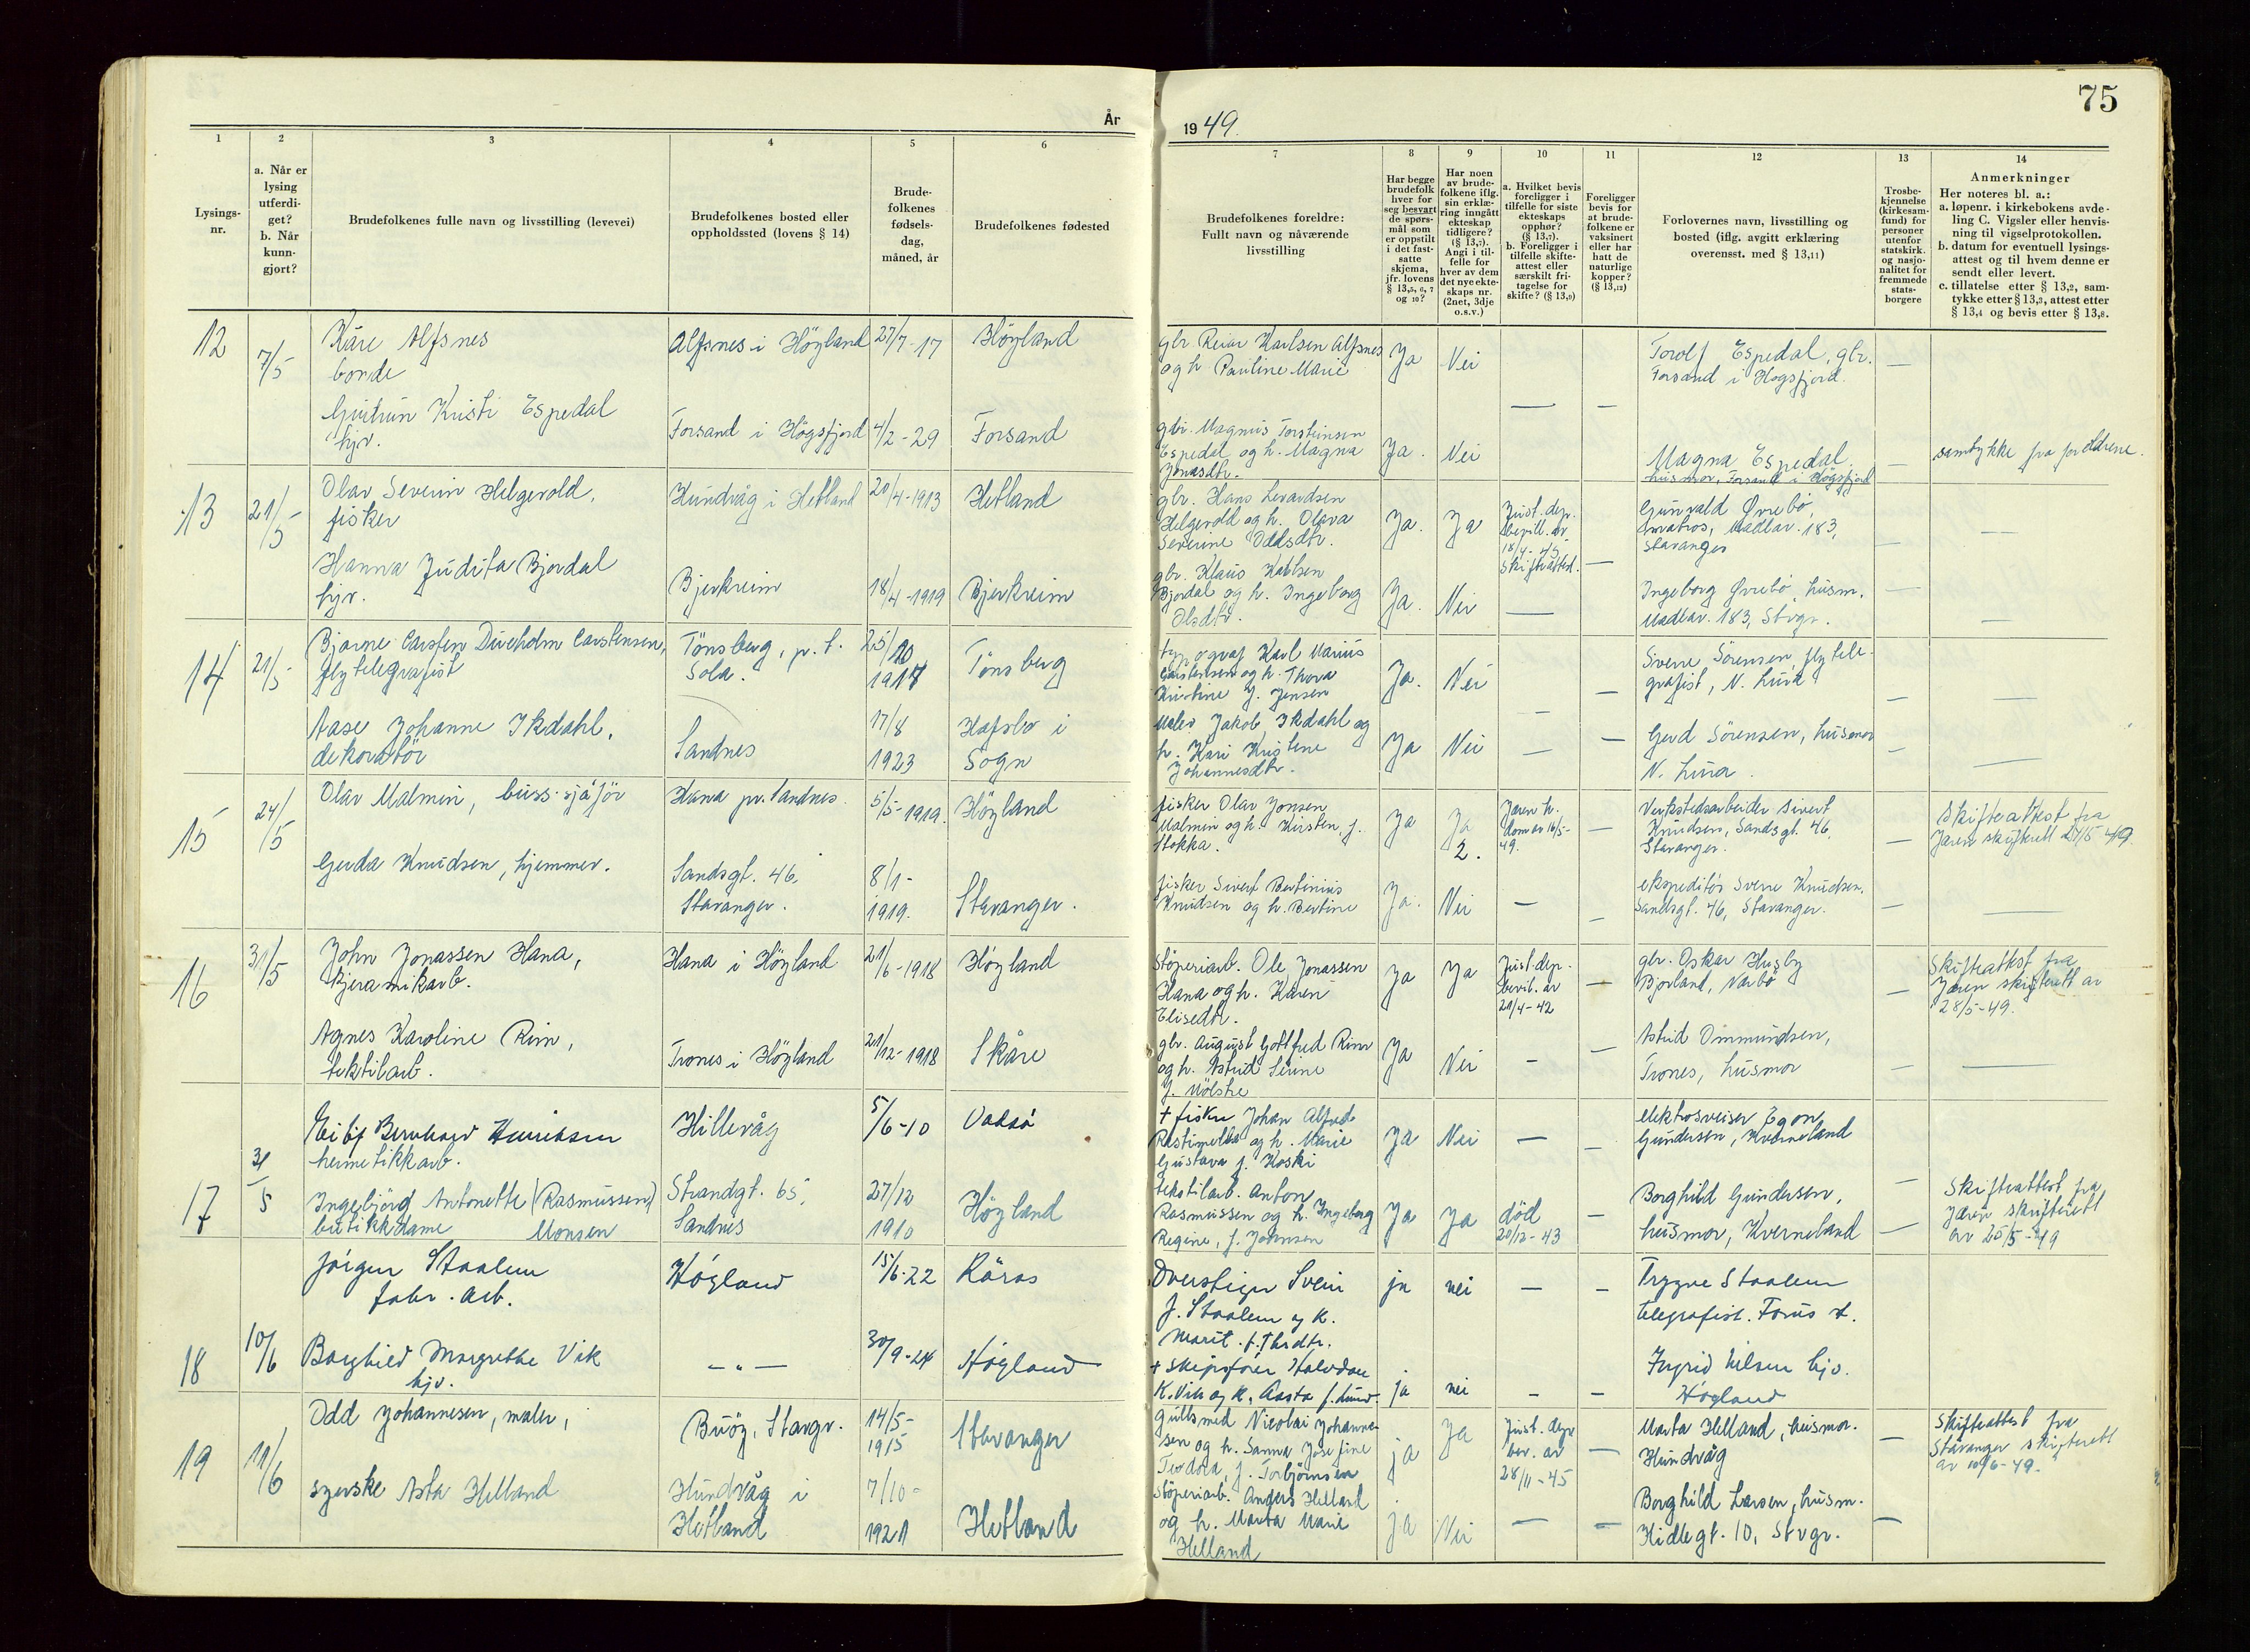 År
1
2
3
4
5
6
Lysings-
nr.
a. Når er
lysing
utferdi-
get?
b. Når
kunn-
gjort?
Brudefolkenes fulle navn og livsstilling (levevei)
Brudefolkenes bosted eller
oppholdssted (lovens § 14)
Brude-
folkenes
fødsels-
dag,
måned, år
Brudefolkenes fødested
12
7/5
Kåre Alfsnes
bonde
Alfsnes i Höyland
27/7-17
Höyland
Gudrun Kristi Espedal
hjv.
Forsand i Högsfjord
4/2-29
Forsand
13
21/5
Olav Severin Helgevold,
fisker
Hundvåg i Hetland
20/4-1913
Hetland
Hanna Judita Bjordal
hjv.
Bjerkreim
18/4-1919
Bjerkreim
14
21/5
Bjarne Carsten Dueholm Carstensen,
flytelegrafist
Tönsberg, p.t.
Sola.
25/10
1917
Tönsberg
Aase Johanne Ikdahl,
dekoratör
Sandnes
17/8
1923
Hafslo i
Sogn
15
24/5
Olav Malmin, buss-sjåför
Hana pr. Sandnes.
5/5-1919.
Höyland
Gerda Knudsen, hjemmev.
Sandsgt. 46,
Stavanger.
8/1-
1919.
Stavanger.
16
31/5
John Jonassen Hana,
kjeramikarb.
Hana i Höyland
21/6-1918
Höyland
Agnes Karoline Rim,
tekstilarb.
Trones i Höyland
21/12-1918
Skåre
17
31/5
Eilif Bernhard Henriksen
hermetikkarb.
Hillevåg
5/6-10
Vadsö
Ingebjörg Antonette (Rasmussen)
butikkdame Monsen
Strandgt. 65,
Sandnes
27/12
1910
Höyland
18
10/6
Jörgen Staalen
fabr. arb.
Höyland
15/6-22
Röros
Borghild Margrethe Vik
hjv.
— " —
30/9-24
Höyland
19
11/6
Odd Johannesen, maler,
Buöy, Stavgr.
14/5-
1915
Stavanger
syerske Asta Helland
Hundvåg i
Hetland
7/10-
1921
Hetland
75
1949.
7
8
9
10
11
12
13
14
Brudefolkenes foreldre:
Fullt navn og nåværende
livsstilling
Har begge
brudefolk
hver for
seg besvart
de spørs-
mål som
er oppstilt
i det fast-
satte
skjema,
jfr. lovens
§ 13,5, 6, 7
og 10?
Har noen
av brude-
folkene iflg.
sin erklæ-
ring inngått
ekteskap
tidligere?
(§ 13,7).
Angi i til-
felle for
hver av dem
det nye ekte-
skaps nr.
(2net, 3dje
o.s.v.)
a. Hvilket bevis
foreligger i
tilfelle for siste
ekteskaps
opphør?
(§ 13,7).
b. Foreligger i
tilfelle skifte-
attest eller
særskilt fri-
tagelse for
skifte? (§ 13,9)
Foreligger
bevis for
at brude-
folkene er
vaksinert
eller har
hatt de
naturlige
kopper?
(§ 13,12)
Forlovernes navn, livsstilling og
bosted (iflg. avgitt erklæring
overensst. med § 13,11)
Trosbe-
kjennelse
(kirkesam-
fund) for
personer
utenfor
statskirk.
og nasjo-
nalitet for
fremmede
stats-
borgere
Anmerkninger
Her noteres bl. a.:
a. løpenr. i kirkebokens avde-
ling C. Vigsler eller henvis-
ning til vigselprotokollen.
b. datum for eventuell lysings-
attest og til hvem denne er
sendt eller levert.
c. tillatelse etter § 13,2, sam-
tykke etter § 13,3, attest etter
§ 13,4 og bevis etter § 13,8.
gbr Reiar Karlsen Alfsnes
og h Pauline Marie
Ja
Nei
Torolf Espedal, gbr.
Forsand i Høgsfjord.
gbr. Magnus Torsteinsen
Espedal og h. Magna
Jonasdtr.
Ja.
Nei
Magna Espedal,
husmor, Forsand i Högsfjord
samtykke fra foreldrene.
gbr. Hans Levardsen
Helgevold og h. Olava
Severine Oddsdtr.
Ja.
Ja
Just. dep.
bevill. av
18/4-45
Skifteattest.
Gunvald Øvrebö,
matros, Madlav. 183,
Stavanger
gbr. Klaus
Bjordal og h. Ingeborg
Olsdtr.
Ja.
Nei
Ingeborg Øvrebö, husm.
Madlav. 183, Stvgr.
typograf Karl Marius
Carstensen og h. Thora
Kristine f. Jensen
Ja.
Nei
Sverre Sörensen, flytele-
grafist, N. Lura
Maler Jakob Ikdahl og
h. Kari Kristene
Johannesdtr.
Ja
Nei
Gerd Sörensen, husmor
N. Lura.
fisker Olav Jonsen
Malmin og h. Kirsten, f.
Stokka.
Ja
Ja
2.
Jæren h.
dom av 16/5-
49.
Verkstedsarbeider Sivert
Knudsen, Sandsgt. 46,
Stavanger.
Skifteattest fra
Jæren skifterett 24/5-49.
fisker Sivert Bertinius
Knudsen og h. Bertine
Ja.
Nei
ekspeditör Sverre Knudsen,
Sandsgt. 46, Stavanger.
Stöperiarb. Ole Jonassen
Hana og h. Karen
Elisedtr.
Ja
Ja
Just.dep.
bevil. av
21/4-42
gbr. Oskar Husby
Bjorland, Nærbö
Skifteattest fra
Jæren skifterett av
28/5-49.
gbr. August Gottfred Rim
og h. Astrid Serine
f. Mölstre
Ja
Nei
Astrid Ommundsen,
Trones, husmor
+ fisker Johan Alfred
og h. Marie
Gustava f. Koski
Ja
Nei
elektrosveiser Egon
Gundersen, Kverneland
tekstilarb. Anton
Rasmussen og h. Ingeborg
Regine, f. Johnsen
Ja
Ja
død
20/12-43
Borghild Gundersen,
husmor, Kverneland
Skifteattest fra
Jæren skifterett
av 25/5-49
Overstiger Svein
J. Staalen og h.
Marit.
ja
nei
Trygve Staalen
telegrafist. Forus st.
+ Skipsfører Halvdan
K. Vik og h. Aasta f. Lund.
ja
nei
Ingrid Nilsen hjv.
Høyland
gullsmed Nicolai Johanne-
sen og h. Sanna Josefine
Teodora, f. Torbjörnsen
ja
Ja
Just. dep
bev. av
28/11-45
Marta Helland, husmor.
Hundvåg
Skifteattest fra
Stavanger skifterett
av 10/6-49.
Stöperiarb. Anders Helland
og h. Marta Marie
Helland
ja
Nei
Borghild Larsen, husm.
Hidlegt. 10, Stvgr.